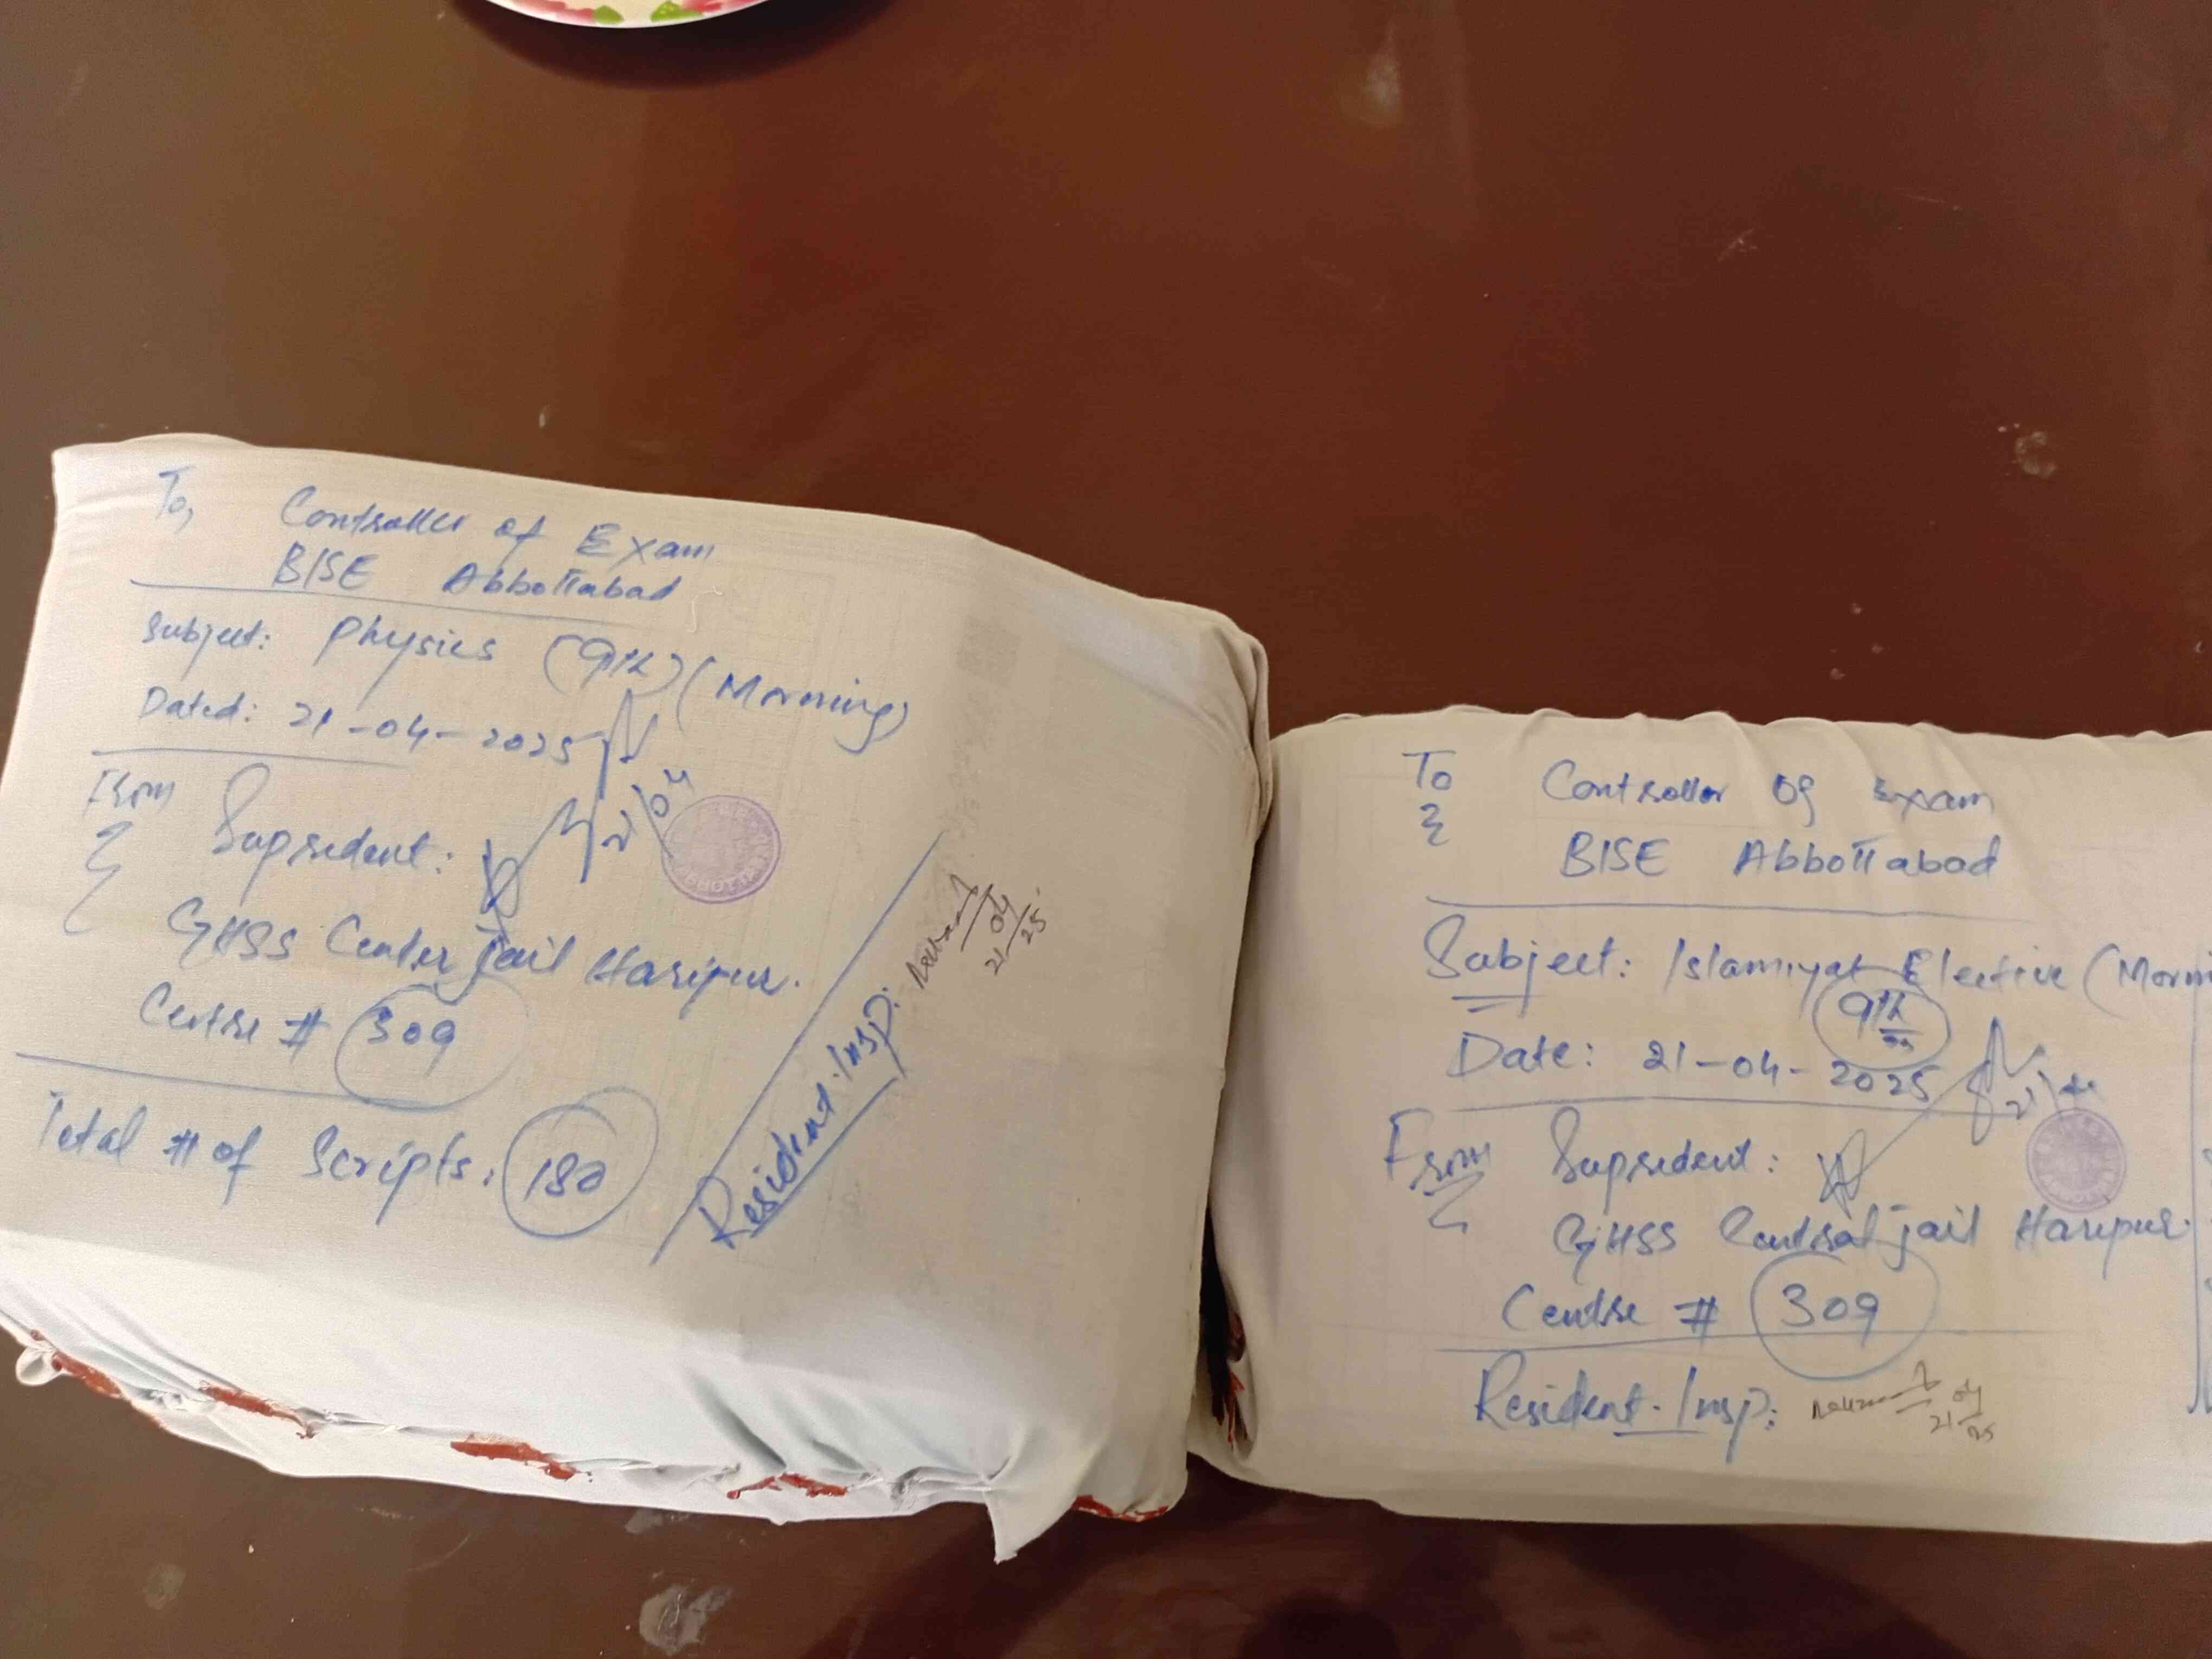 To, Controller of Exam
BISE Abbottabad
Subject: Physics (9th) (Morning)
Dated: 21-04-2025
From
Supredent:
21/04
GHSS Center Jail Haripur.
Centre # 309
Total # of Scripts: 180
Resident. Insp:
21/04/25
To Controller Of Exam
BISE Abbottabad
Subject: Islamiyat Elective (Morni
9th
Date: 21-04-2025
From Supredent:
21
GHSS Central Jail Haripur.
Centre # 309
Resident. Insp:
21/04/25